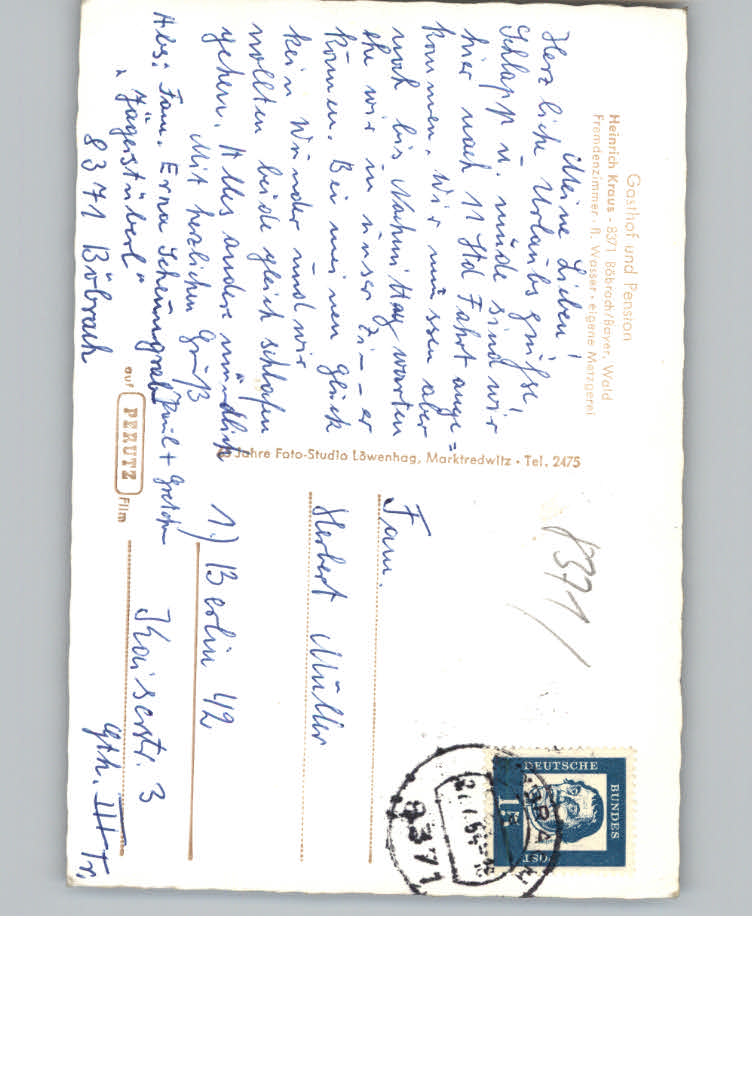 Gasthof und Pension
Heinrich Kraus - 8371 Böbrach/Bayer. Wald
Fremdenzimmer · fl. Wasser · eigene Metzgerei
Meine Lieben!
Herzliche Urlaubsgrüße,
Schlapp u. müde sind wir
hier nach 11 Std Fahrt ange=
kommen. Wir müssen aber
noch bis Nachmittag warten
ehe wir in unser Zi--er
können. Bei meinen Glück
kein Wunder und wir
wollten beide gleich schlafen
gehen. Alles andere mündlich
Mit herzlichen Gruß
Paul + Gretchen
Abs: Fam. Erna Scheungrab
"Jägerstüberl"
8371 Böbrach
Jahre Foto-Studio Löwenhag, Marktredwitz · Tel. 2475
auf PERUTZ Film
8371
Fam.
Herbert Müller
1.) Berlin 42
Kaiserstr. 3
Gth. III Tr.
DEUTSCHE
BUNDES
POST
15
8371